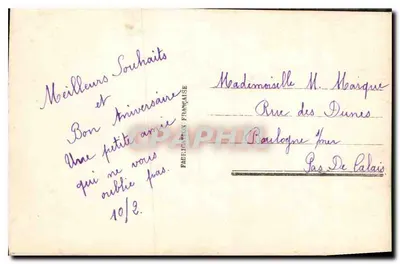 Meilleurs Souhaits
et
Bon Aniversaire
Une petite amie
qui ne vous
oublie pas.
10/2.
FABRICATION FRANÇAISE
Mademoiselle M. Marque
Rue des Dunes
Boulogne /mer
Pas De Calais